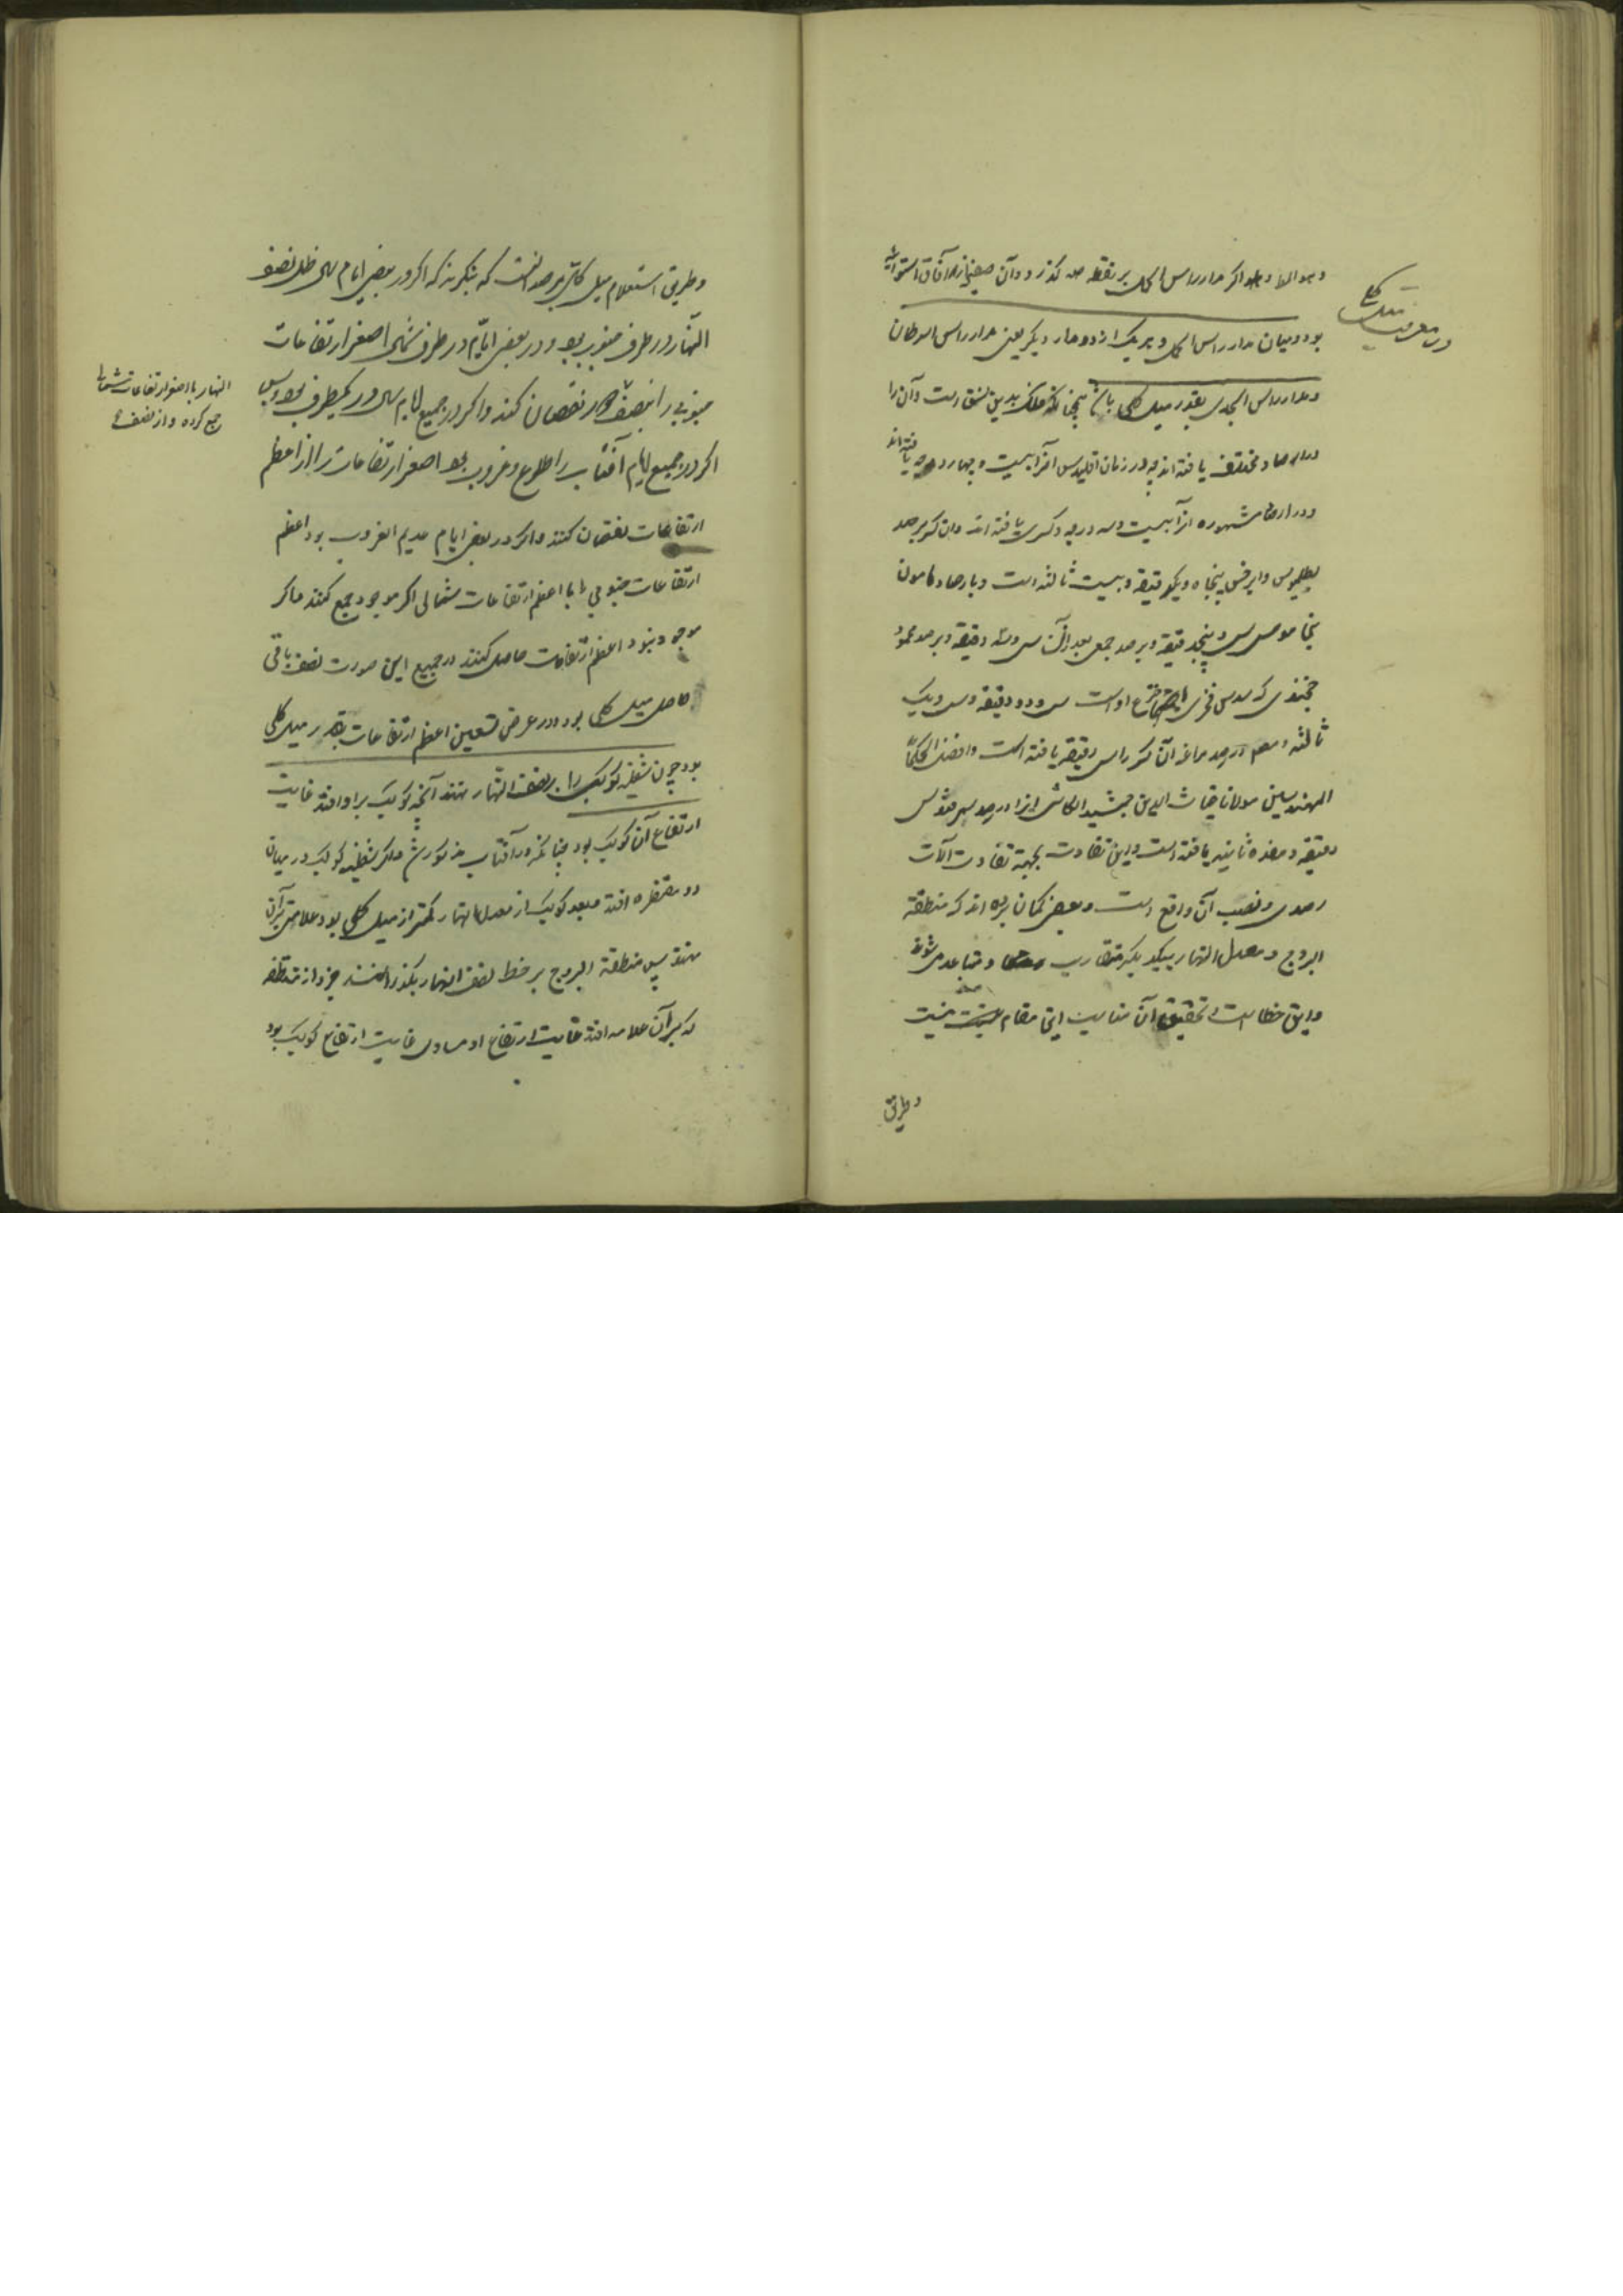 در معرفت میل کلی
و اگر مدار راس الحمل بر نقطه گذرد و آن صفیحه آفاق استوائیه
بود و میان مدار راس الحمل و هر یک از دو مدار دیگر یعنی مدار راس السرطان
و مدار راس الجدی بقدر میل کلی باشد بدین نسق است و آن را
مختلف یافته اند چه در زمان اقلیدس آنرا بیست و چهار درجه یافته اند
و در ارصاد مشهوره آنرا بیست و سه درجه و کسری یافته اند و آن کسر برصد
بطلمیوس و ابرخس پنجاه و یک دقیقه و بیست ثالثه است و بارصاد مامون
سی و پنج دقیقه و برصد جمعی بعد از آن سی و سه دقیقه و برصد محمود
خجندی که سدس فخری اختراع اوست سی و دو دقیقه و سی و یک
ثالثه و در رصد مراغه آن کسر را سی دقیقه یافته است و افضل الحکماء
المهندسین مولانا غیاث الدین جمشید الکاشی آنرا در رصد سمرقند سی
دقیقه و هفده ثانیه یافته است و این تفاوت بجهة تفاوت آلات
رصدی و نصب آن واقع است و بعضی گمان برده اند که منطقة
البروج و معدل النهار بیکدیگر متقارب و متباعد می شوند
و این خطاست و تحقیق آن مناسب این مقام نیست
و طریق
و طریق استعلام میل کلی برصد آنست که بنگرند که اگر در بعضی ایام سال ظل نصف
النهار در طرف جنوب بود و در بعضی ایام در طرف شمال اصغر ارتفاعات
النهار با اصغر ارتفاعات شمالی
جمع کرده و از نصف
جنوبی را نقصان کنند و اگر در جمیع ایام سال در یکطرف بود پس
اگر در جمیع ایام آفتاب را طلوع و غروب بود اصغر ارتفاعات را از اعظم
ارتفاعات نقصان کنند و اگر در بعضی ایام عدیم الغروب بود اعظم
ارتفاعات جنوبی را با اعظم ارتفاعات شمالی اگر موجود جمع کنند و اگر
موجود نبود اعظم ارتفاعات حاصل کنند در جمیع این صورت نصف باقی
حاصل میل کلی بود و در عرض تسعین اعظم ارتفاعات بقدر میل کلی
بود چون شظیه کوکب را بر نصف النهار نهند آنچه کوکب بر او افتد غایت
ارتفاع آن کوکب بود چنانکه در آفتاب مذکور شد و اگر شظیه کوکب در میان
دو مقنطره افتد و بعد کوکب از معدل النهار کمتر از میل کلی بود علامتی بر آن
نهند پس منطقة البروج بر خط نصف النهار بگذرانند هر جزو از منطقه
که بر آن علامه افتد غایت ارتفاع او مساوی غایت ارتفاع کوکب بود